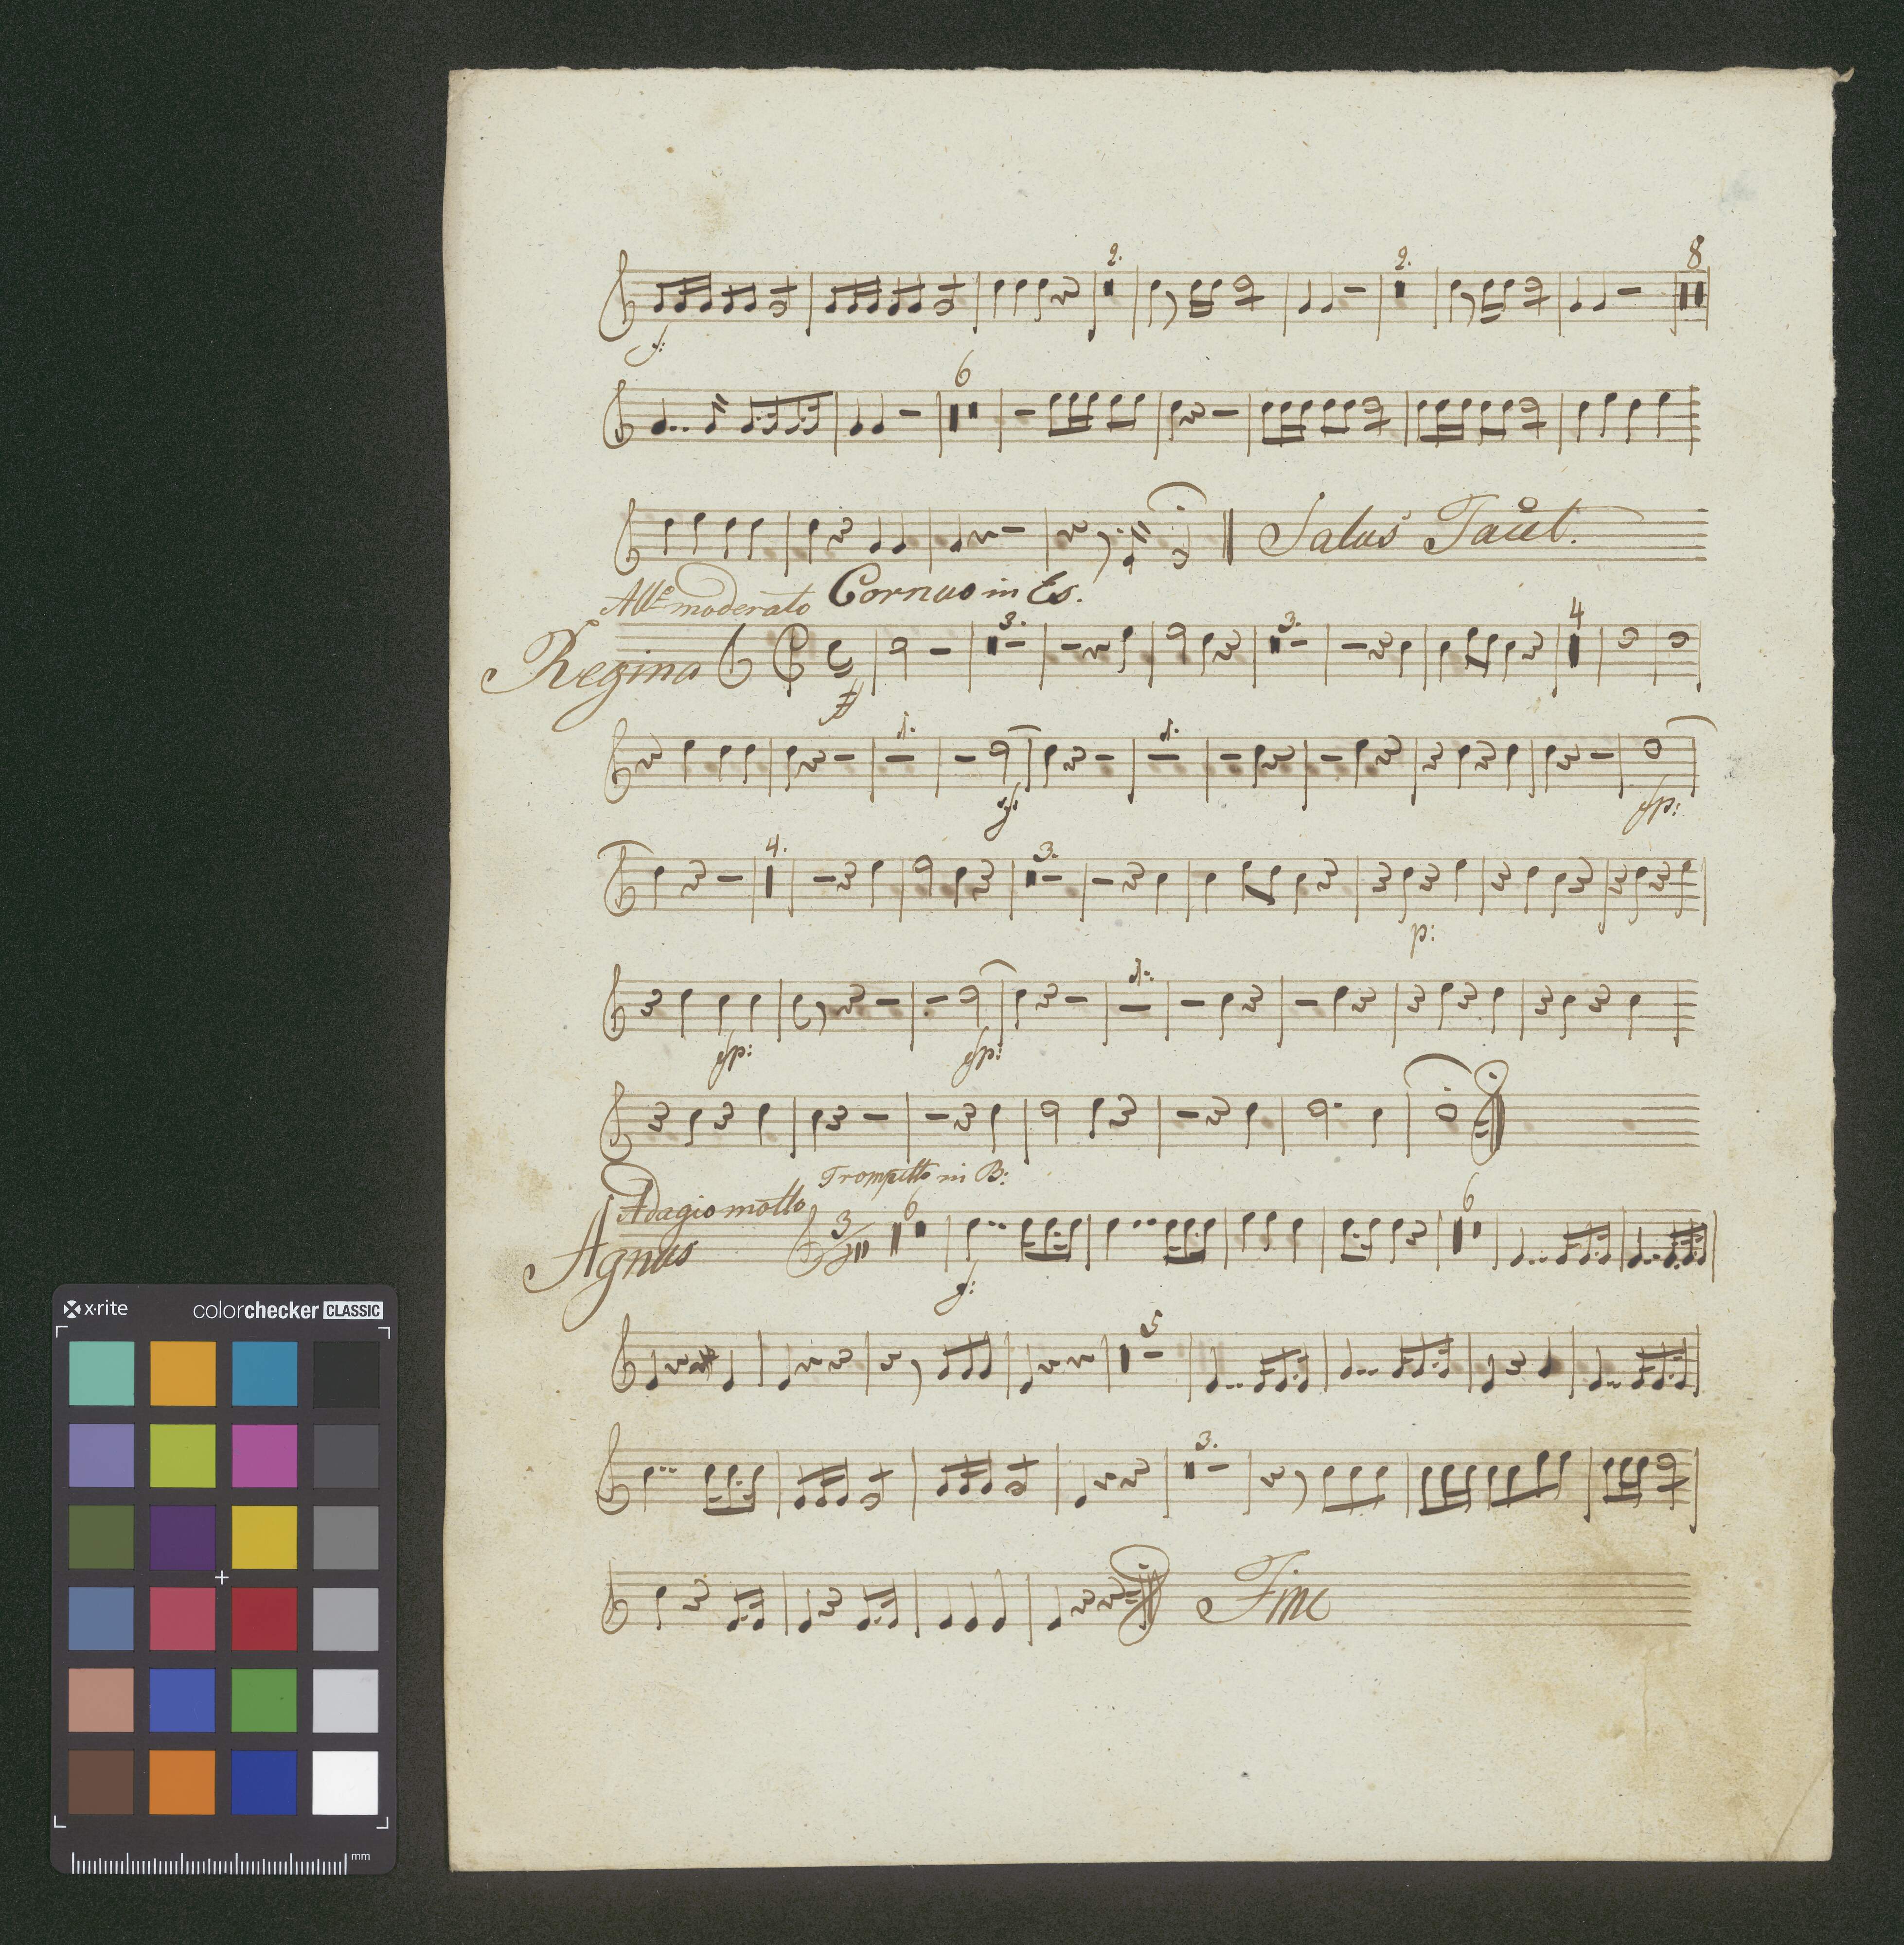 2. 2. 8
f:
6
Salus Tacet.
Allo moderato Cornuo in Es.
Regina 3. 3. 4
ff
1. 1.
sf: sfp:
4. 3.
p:
1.
sfp: sfp:
Trompetto in B:
Adagio molto 3 6 6
Agnus
f:
5
3.
Fine
x-rite colorchecker CLASSIC
mm